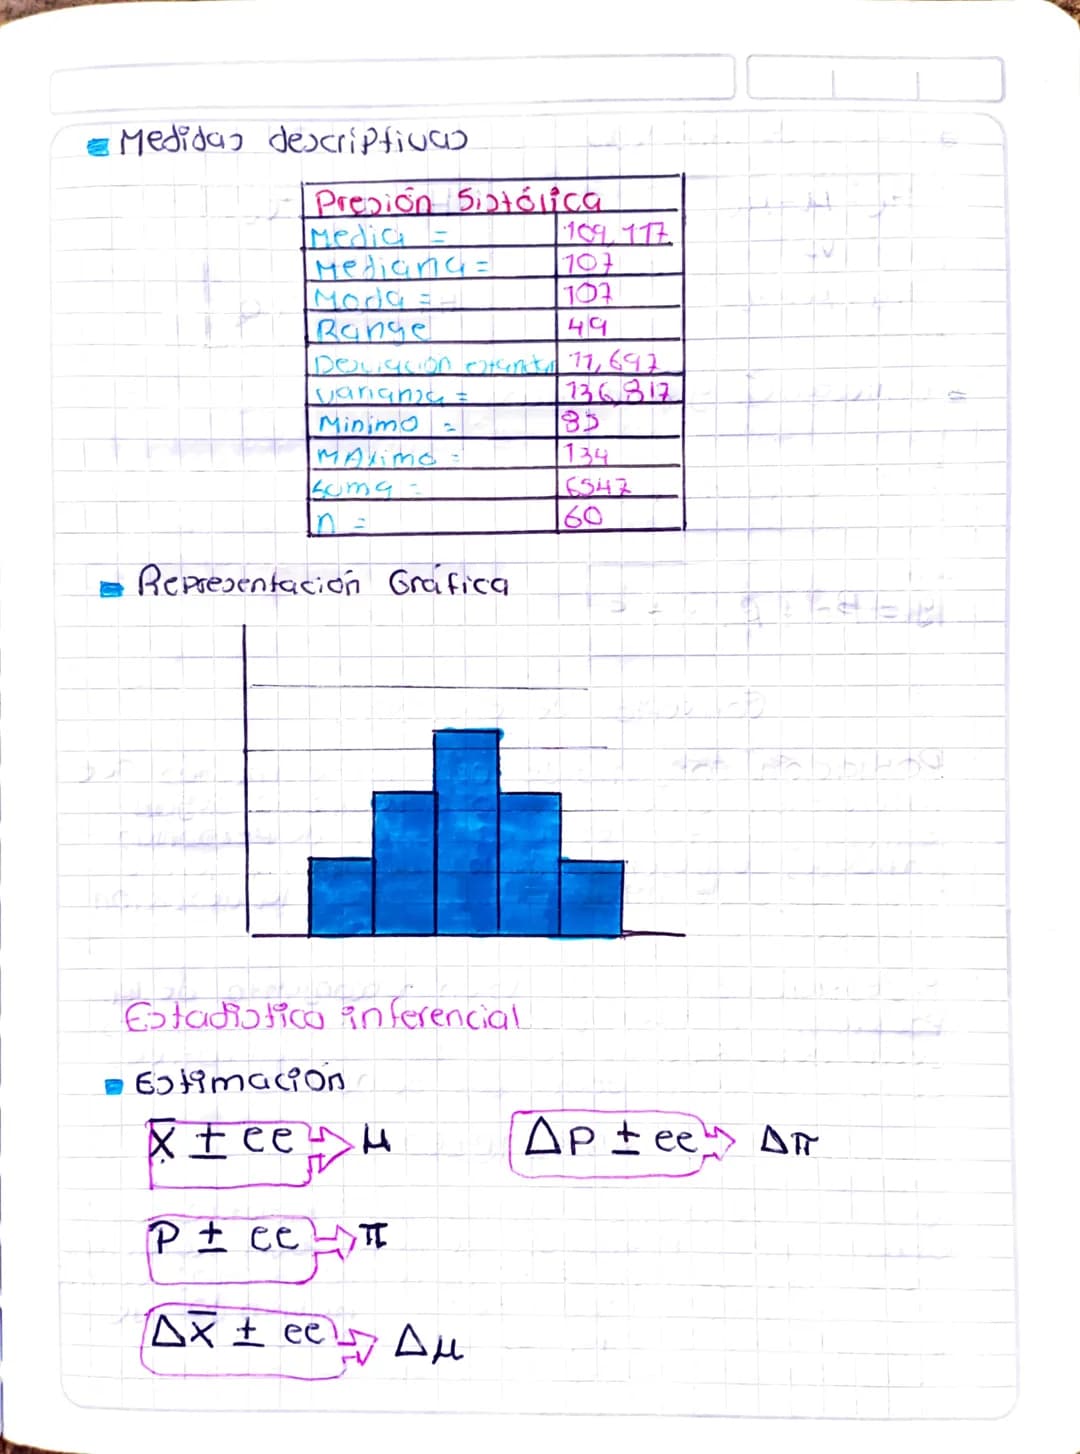 Medidas descriptivas
Presión Sistólica
Media = 109,117
Mediana = 107
Moda = 107
Range 49
Desviación estanda 11,697
varianza = 136,817
Minimo = 85
MAximo = 134
suma = 6547
n = 60
Representación Gráfica
Estadistica inferencial
Estimación
x̅ ± ee ⇒ μ Δp ± ee ⇒ Δπ
P ± ee ⇒ π
Δx̅ ± ee ⇒ Δμ